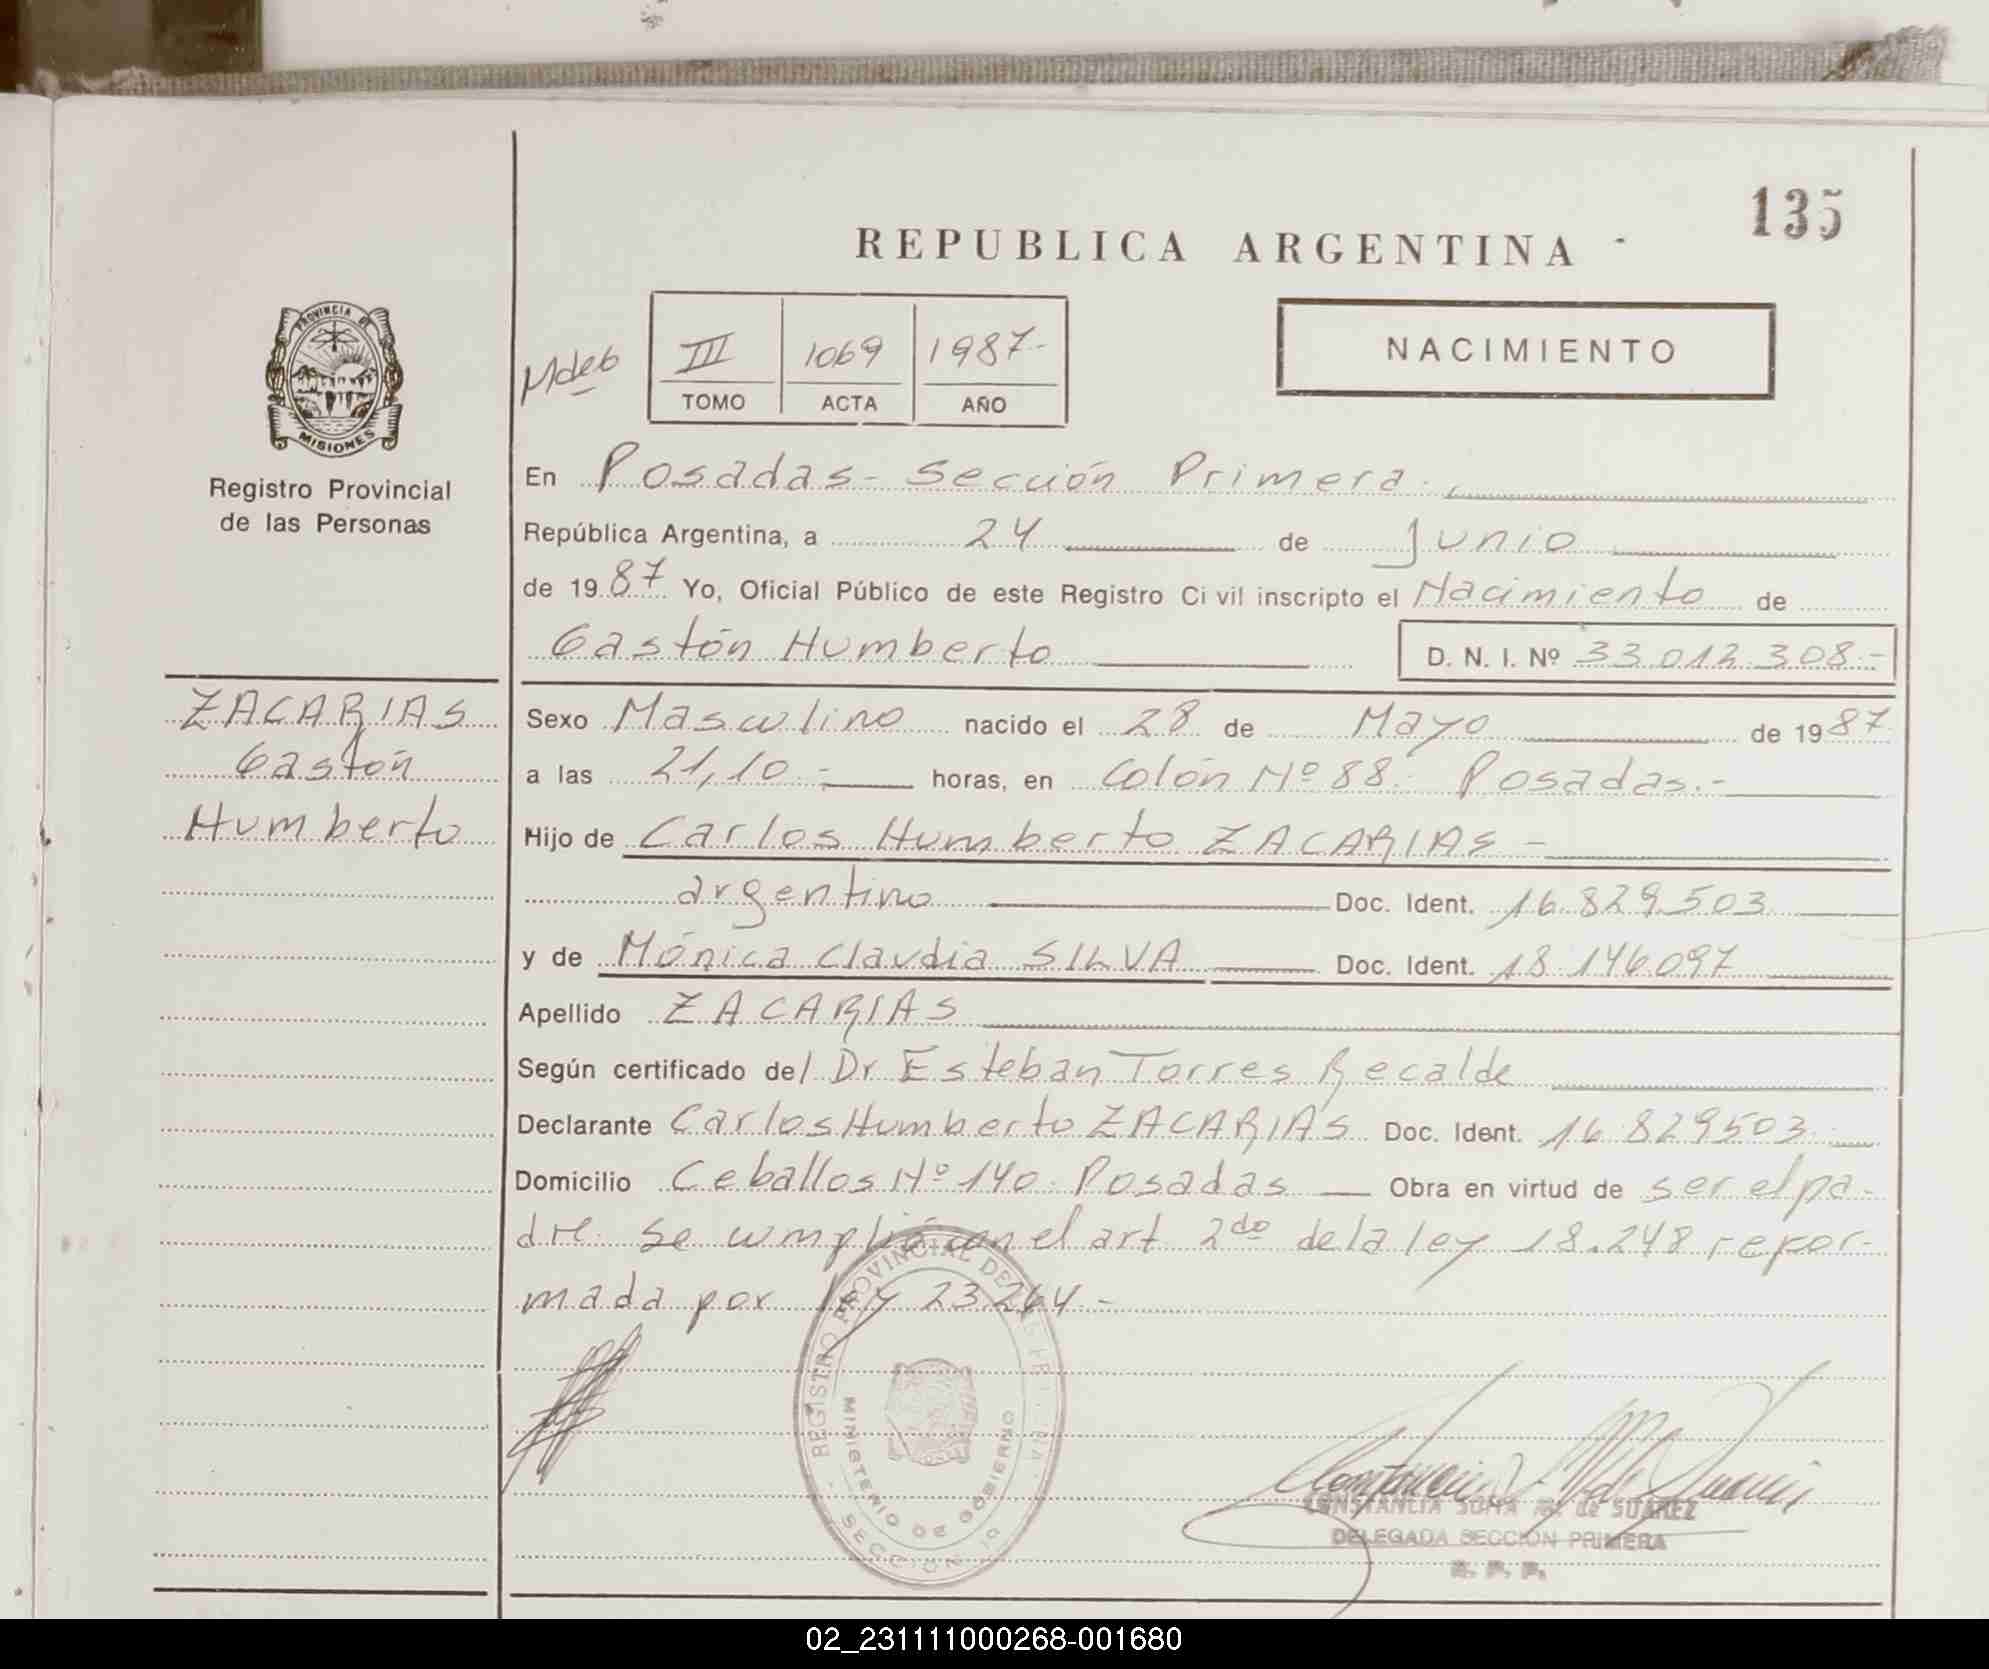 135
REPUBLICA ARGENTINA
PROVINCIA DE
MISIONES
Registro Provincial
de las Personas
III 1069 1987-
TOMO ACTA AÑO
NACIMIENTO
En Posadas - Sección Primera.
República Argentina, a 24 de Junio
de 1987 Yo, Oficial Público de este Registro Civil inscripto el Nacimiento de
Gastón Humberto D. N. I. Nº 33.012.308.-
ZACARIAS
Gastón
Humberto
Sexo Masculino nacido el 28 de Mayo de 1987
a las 21,10.- horas, en Colón Nº 88. Posadas.-
Hijo de Carlos Humberto ZACARIAS -
argentino Doc. Ident. 16.829.503
y de Mónica Claudia SILVA Doc. Ident. 18.146.097
Apellido ZACARIAS
Según certificado del Dr Esteban Torres Recalde
Declarante Carlos Humberto ZACARIAS Doc. Ident. 16.829503
Domicilio Ceballos Nº 140. Posadas Obra en virtud de ser el pa-
dre. Se cumplió con el art 2do de la ley 18.248 refor-
mada por ley 23264.-
REGISTRO PROVINCIAL DE LAS
MINISTERIO DE GOBIERNO
SECCION 1a
CONSTANCIA SOFIA M. de SUAREZ
DELEGADA SECCION PRIMERA
R. P. P.
02_231111000268-001680